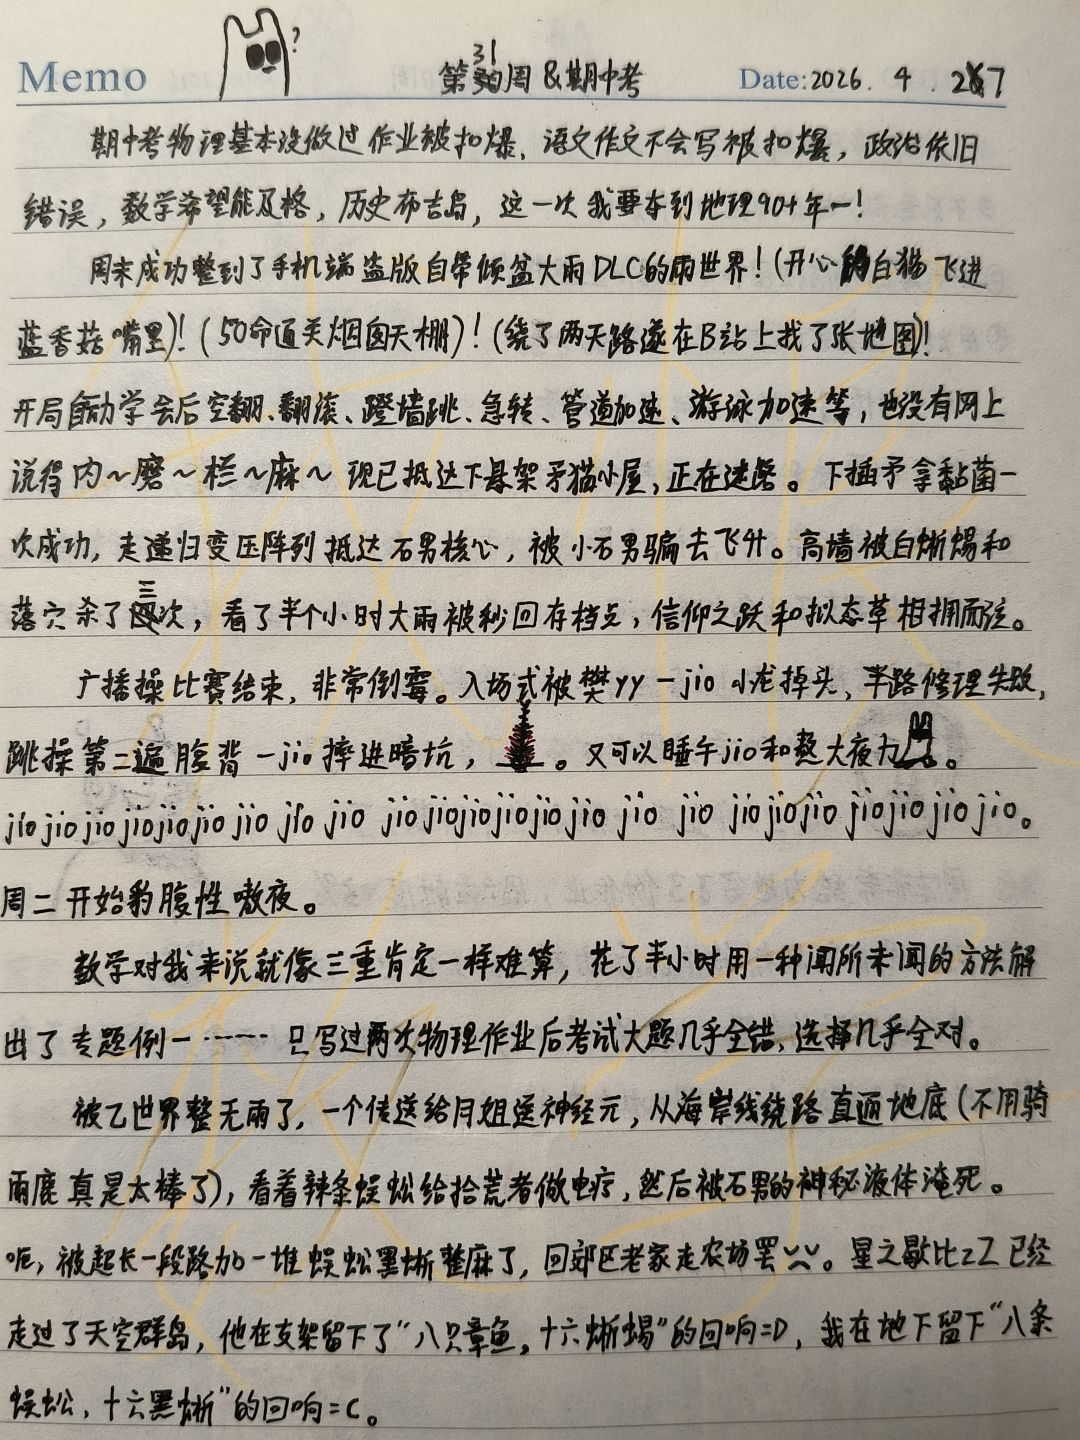 ?
Memo 第31周&期中考 Date:2026.4.27
期中考物理基本没做过作业被扣爆,语文作文不会写被扣爆,政治依旧
错误,数学希望能及格,历史布吉岛,这一次我要夺到地理90+年一!
周末成功整到了手机端盗版自带倾盆大雨DLC的雨世界!(开心的白猫飞进
蓝香菇嘴里)!(50命通关烟囱天棚)!(绕了两天路遂在B站上找了张地图)!
开局自动学会后空翻、翻滚、蹬墙跳、急转、管道加速、游泳加速等,也没有网上
说得内~磨~栏~麻~现已抵达下悬架矛猫小屋,正在迷路。下插矛拿黏菌一
次成功,走递归变压阵列抵达石男核心,被小石男骗去飞升。高墙被白蜥蜴和
落穴杀了三次,看了半个小时大雨被秒回存档点,信仰之跃和拟态草相拥而泣。
广播操比赛结束,非常倒霉。入场式被樊yy一jio小龙掉头,半路修理失败,
跳操第二遍腹背一jio摔进暗坑,。又可以睡午jio和熬大夜力。
jiojiojiojiojiojiojiojiojio jiojiojiojiojiojiojiojiojiojiojiojiojiojiojio。
周二开始豹腹性嗷夜。
数学对我来说就像三重肯定一样难算,花了半小时用一种闻所未闻的方法解
出了专题例一……只写过两次物理作业后考试大题几乎全错,选择几乎全对。
被乙世界整无雨了,一个传送给月姐送神经元,从海岸线绕路直通地底(不用骑
雨鹿真是太棒了),看着辣条蜈蚣给拾荒者做电疗,然后被石男的神秘液体淹死。
呃,被超长一段路加一堆蜈蚣黑蜥整麻了,回郊区老家走农场罢。星之歇比zZ已经
走过了天空群岛,他在支架留下了“八只章鱼,十六蜥蜴”的回响=D,我在地下留下“八条
蜈蚣,十六黑蜥”的回响=C。